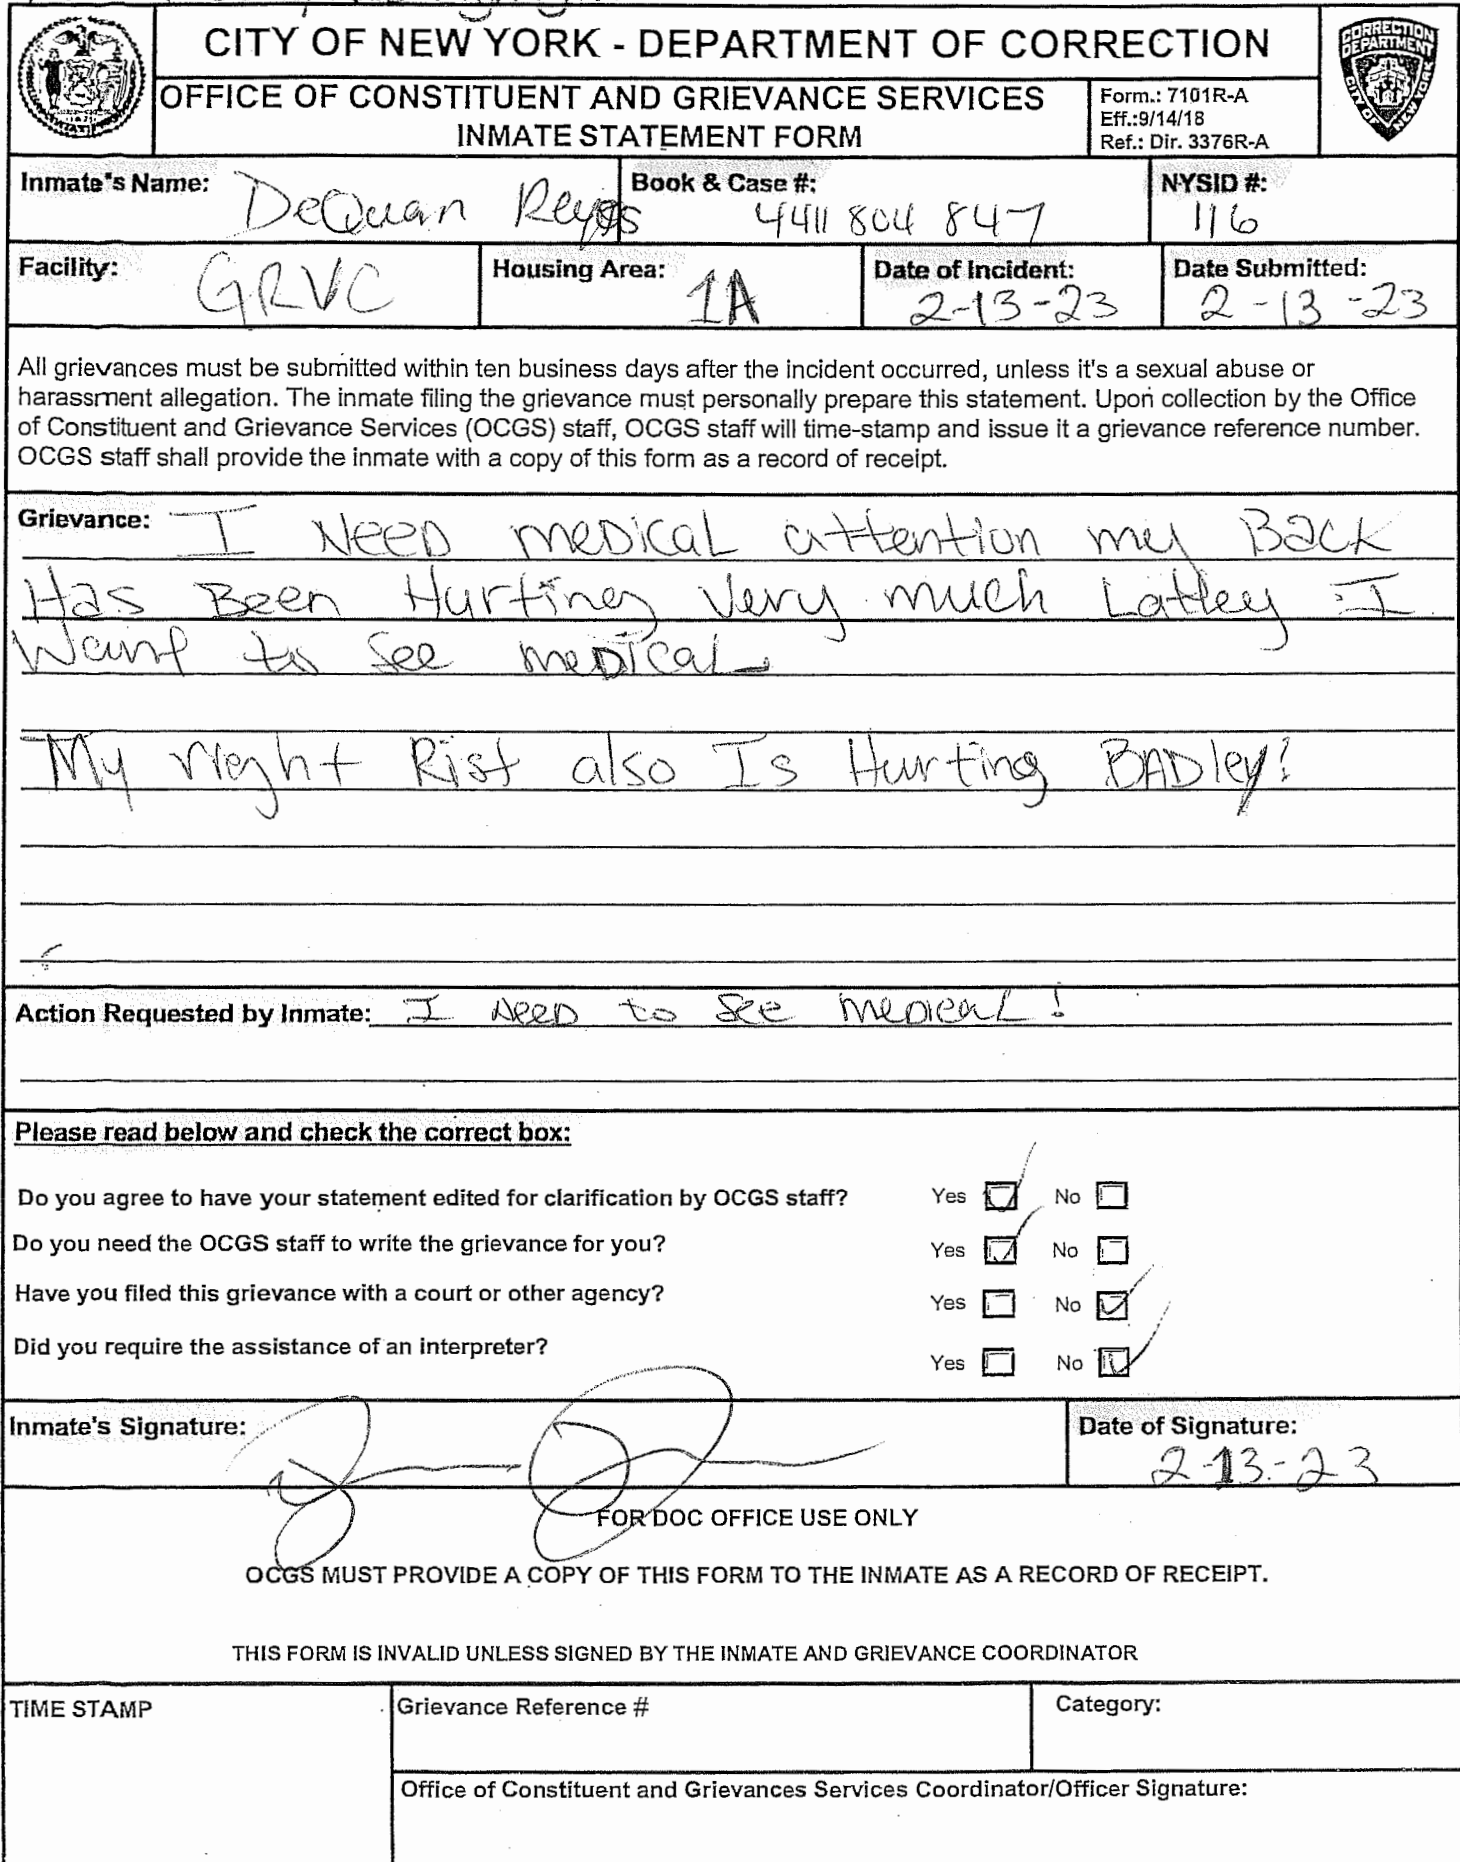 CITY OF NEW YORK - DEPARTMENT OF CORRECTION
CORRECTION
DEPARTMENT
CITY OF NEW YORK
OFFICE OF CONSTITUENT AND GRIEVANCE SERVICES
INMATE STATEMENT FORM
Form.: 7101R-A
Eff.:9/14/18
Ref.: Dir. 3376R-A
Inmate's Name: DeQuan Reyes
Book & Case #: 4411804847
NYSID #: 116
Facility: GRVC
Housing Area: 1A
Date of Incident: 2-13-23
Date Submitted: 2-13-23
All grievances must be submitted within ten business days after the incident occurred, unless it's a sexual abuse or
harassment allegation. The inmate filing the grievance must personally prepare this statement. Upon collection by the Office
of Constituent and Grievance Services (OCGS) staff, OCGS staff will time-stamp and issue it a grievance reference number.
OCGS staff shall provide the inmate with a copy of this form as a record of receipt.
Grievance: I NEED medical attention my Back
Has Been Hurting Very much Latley I
Want to See medical
My rieght Rist also Is Hurting BADley!
Action Requested by Inmate: I NEED to See MEDICAL!
Please read below and check the correct box:
Do you agree to have your statement edited for clarification by OCGS staff? Yes No
Do you need the OCGS staff to write the grievance for you? Yes No
Have you filed this grievance with a court or other agency? Yes No
Did you require the assistance of an interpreter? Yes No
Inmate's Signature:
Date of Signature: 2-13-23
FOR DOC OFFICE USE ONLY
OCGS MUST PROVIDE A COPY OF THIS FORM TO THE INMATE AS A RECORD OF RECEIPT.
THIS FORM IS INVALID UNLESS SIGNED BY THE INMATE AND GRIEVANCE COORDINATOR
TIME STAMP
Grievance Reference #
Category:
Office of Constituent and Grievances Services Coordinator/Officer Signature: